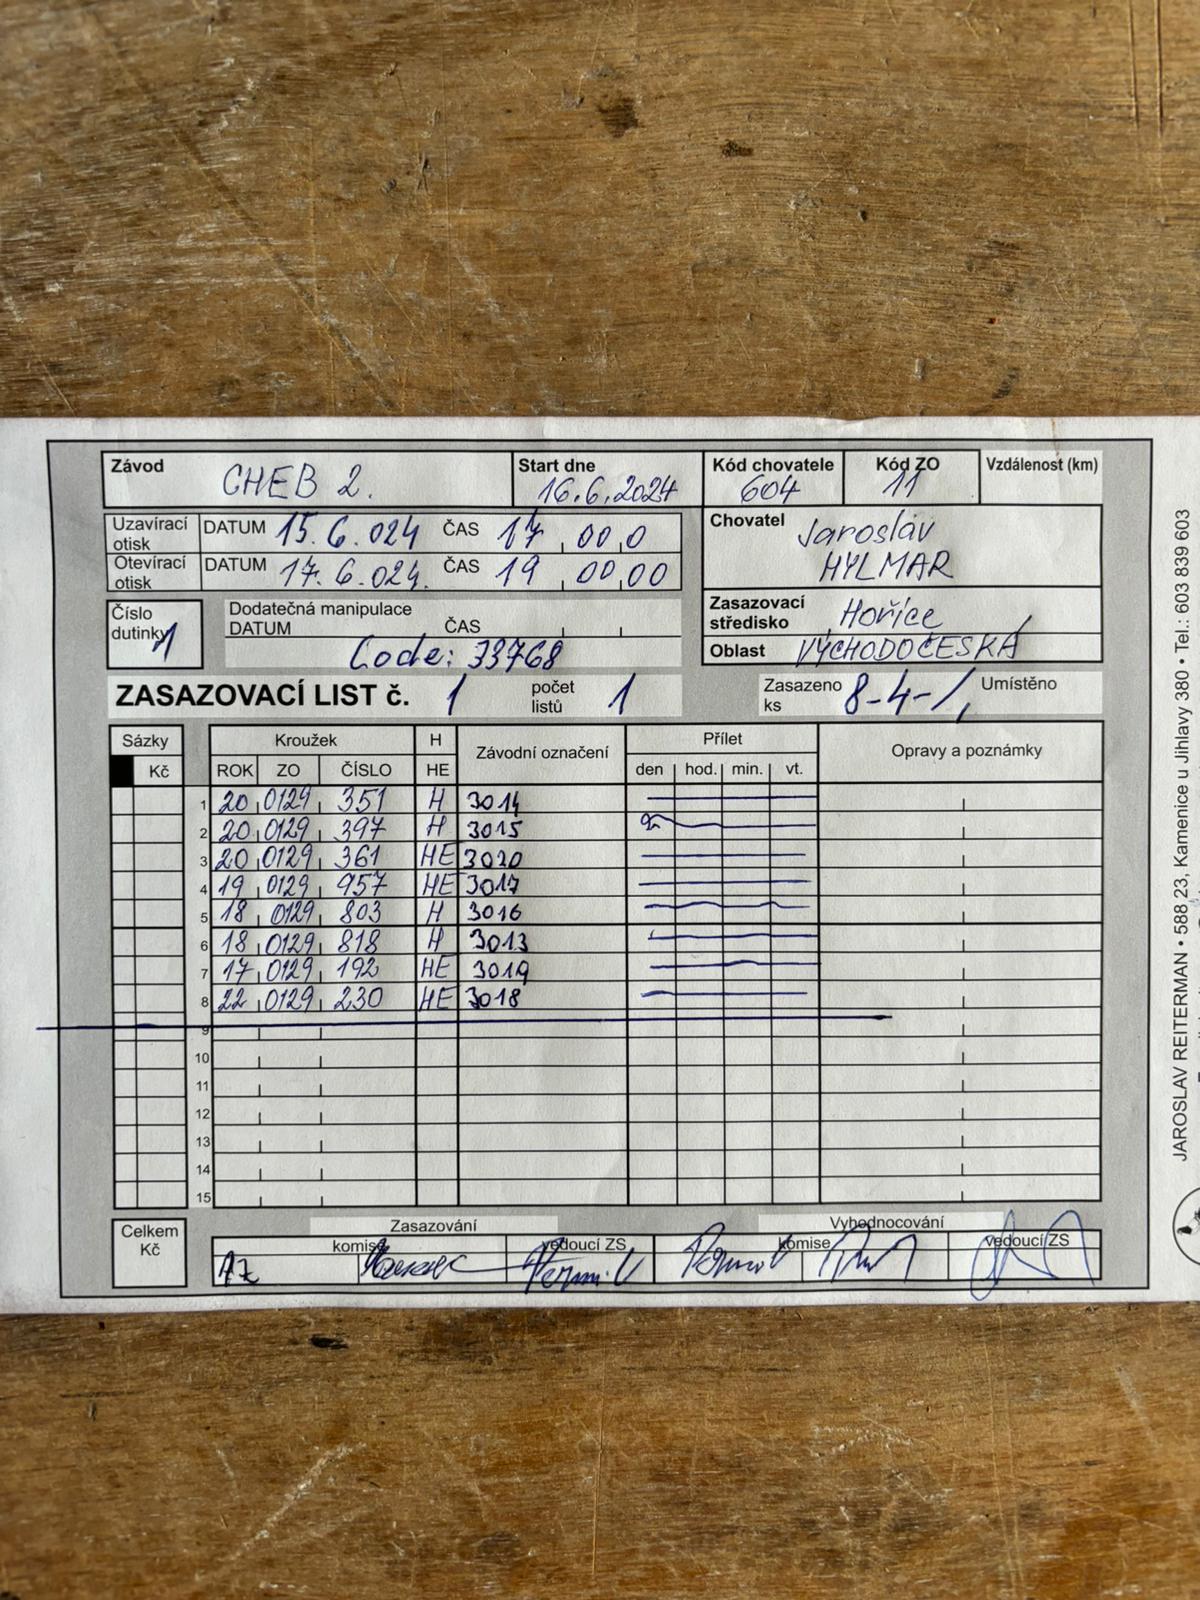 Závod CHEB 2. Start dne 16.6.2024 Kód chovatele 604 Kód ZO 11 Vzdálenost (km)
Uzavírací otisk DATUM 15.6.024 ČAS 17 00 0
Otevírací otisk DATUM 17.6.024. ČAS 19 00 00
Chovatel Jaroslav
HYLMAR
Číslo dutinky 1
Dodatečná manipulace
DATUM ČAS
Code: 33768
Zasazovací středisko Hořice
Oblast VÝCHODOČESKÁ
ZASAZOVACÍ LIST č. 1 počet listů 1 Zasazeno ks 8-4-1, Umístěno
Sázky Kroužek H Závodní označení Přílet Opravy a poznámky
Kč ROK ZO ČÍSLO HE den hod. min. vt.
1 20 0129 351 H 3014
2 20 0129 397 H 3015
3 20 0129 361 HE 3020
4 19 0129 957 HE 3017
5 18 0129 803 H 3016
6 18 0129 818 H 3013
7 17 0129 192 HE 3019
8 22 0129 230 HE 3018
9
10
11
12
13
14
15
Celkem Kč
Zasazování Vyhodnocování
komise vedoucí ZS komise vedoucí ZS
JAROSLAV REITERMAN • 588 23, Kamenice u Jihlavy 380 • Tel.: 603 839 603